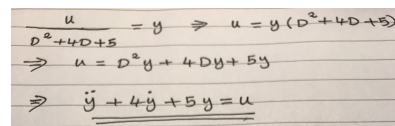 u/(D²+4D+5) = y ⇒ u = y(D²+4D+5)
⇒ u = D²y + 4Dy + 5y
⇒ ÿ + 4ẏ + 5y = u